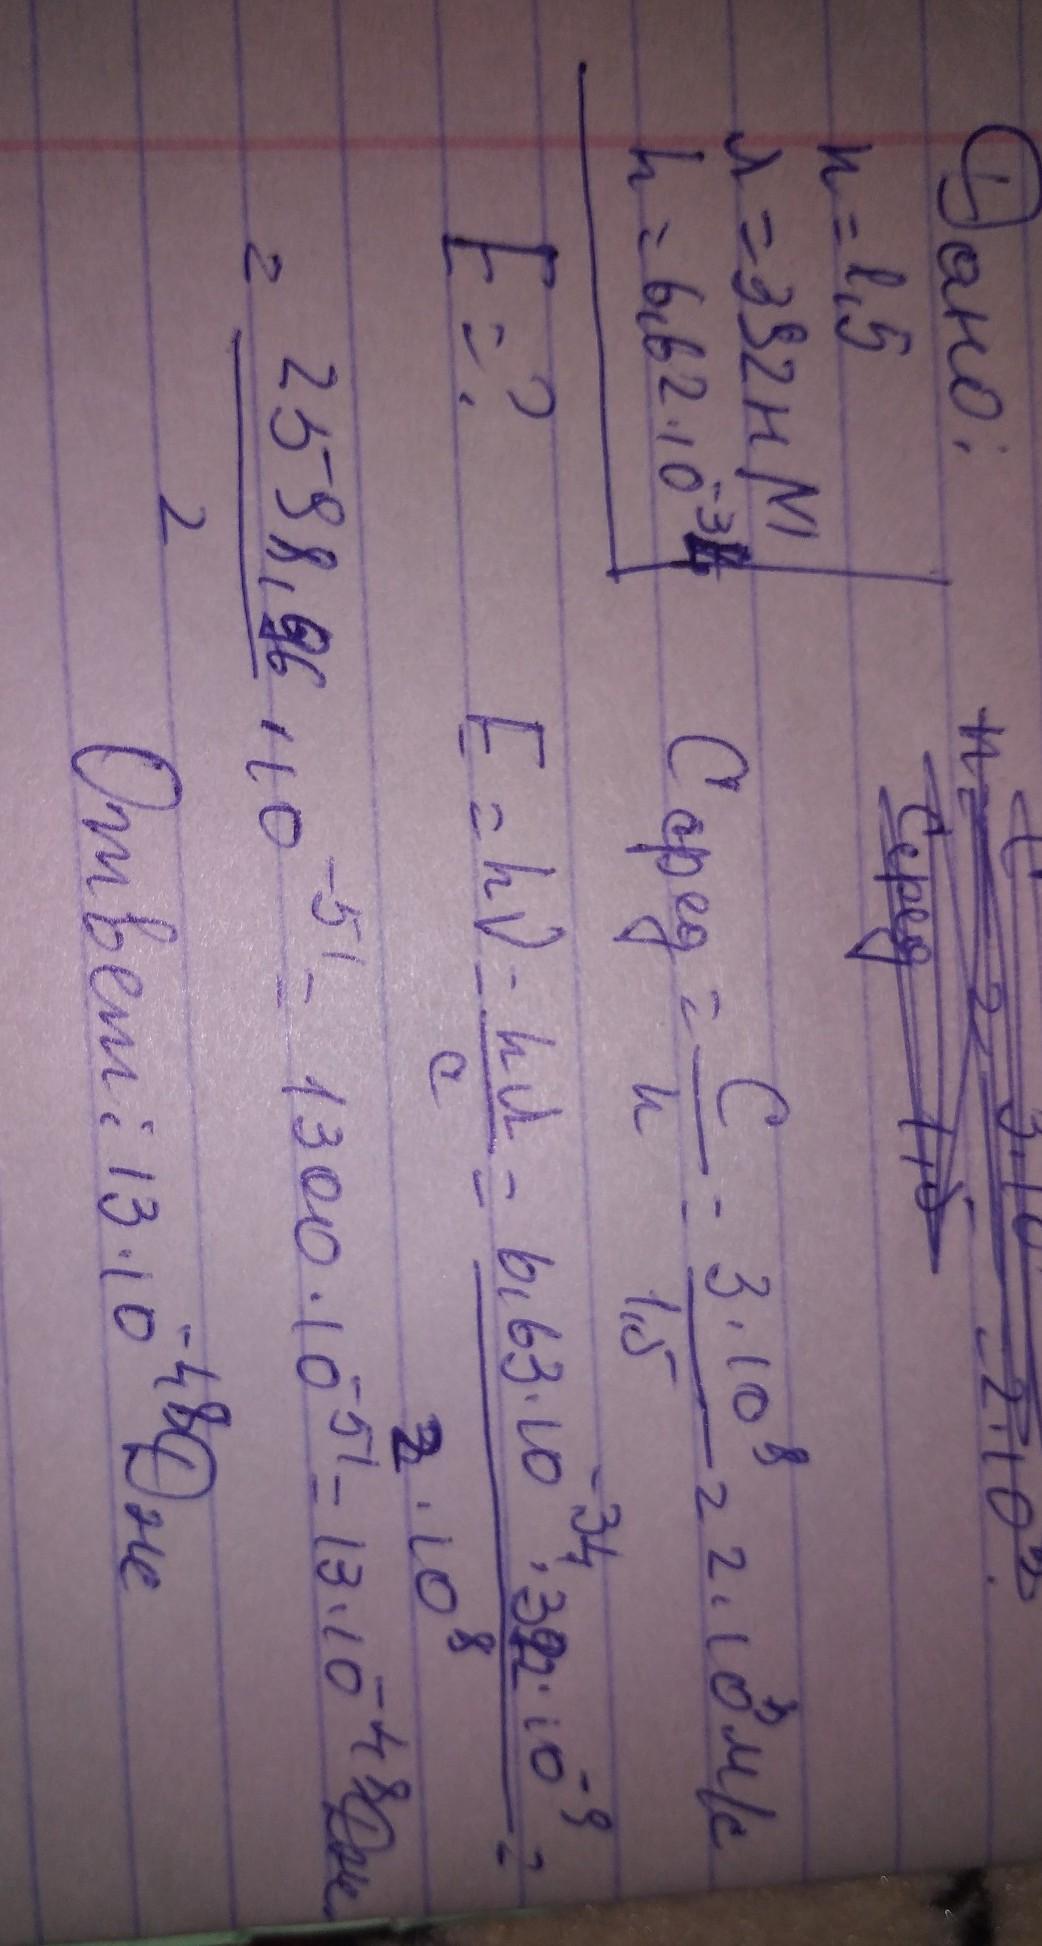 Дано:
n = 1,5
λ = 392 нм
h = 6,62·10^-34
E = ?
Cсред = C/n = 3·10^8/1,5 = 2·10^8 м/с
E = hν = hλ/c = 6,63·10^-34·392·10^-9/2·10^8 =
= 2598,96·10^-51/2 = 1300·10^-51 = 13·10^-48 Дж
Ответ: 13·10^-48 Дж